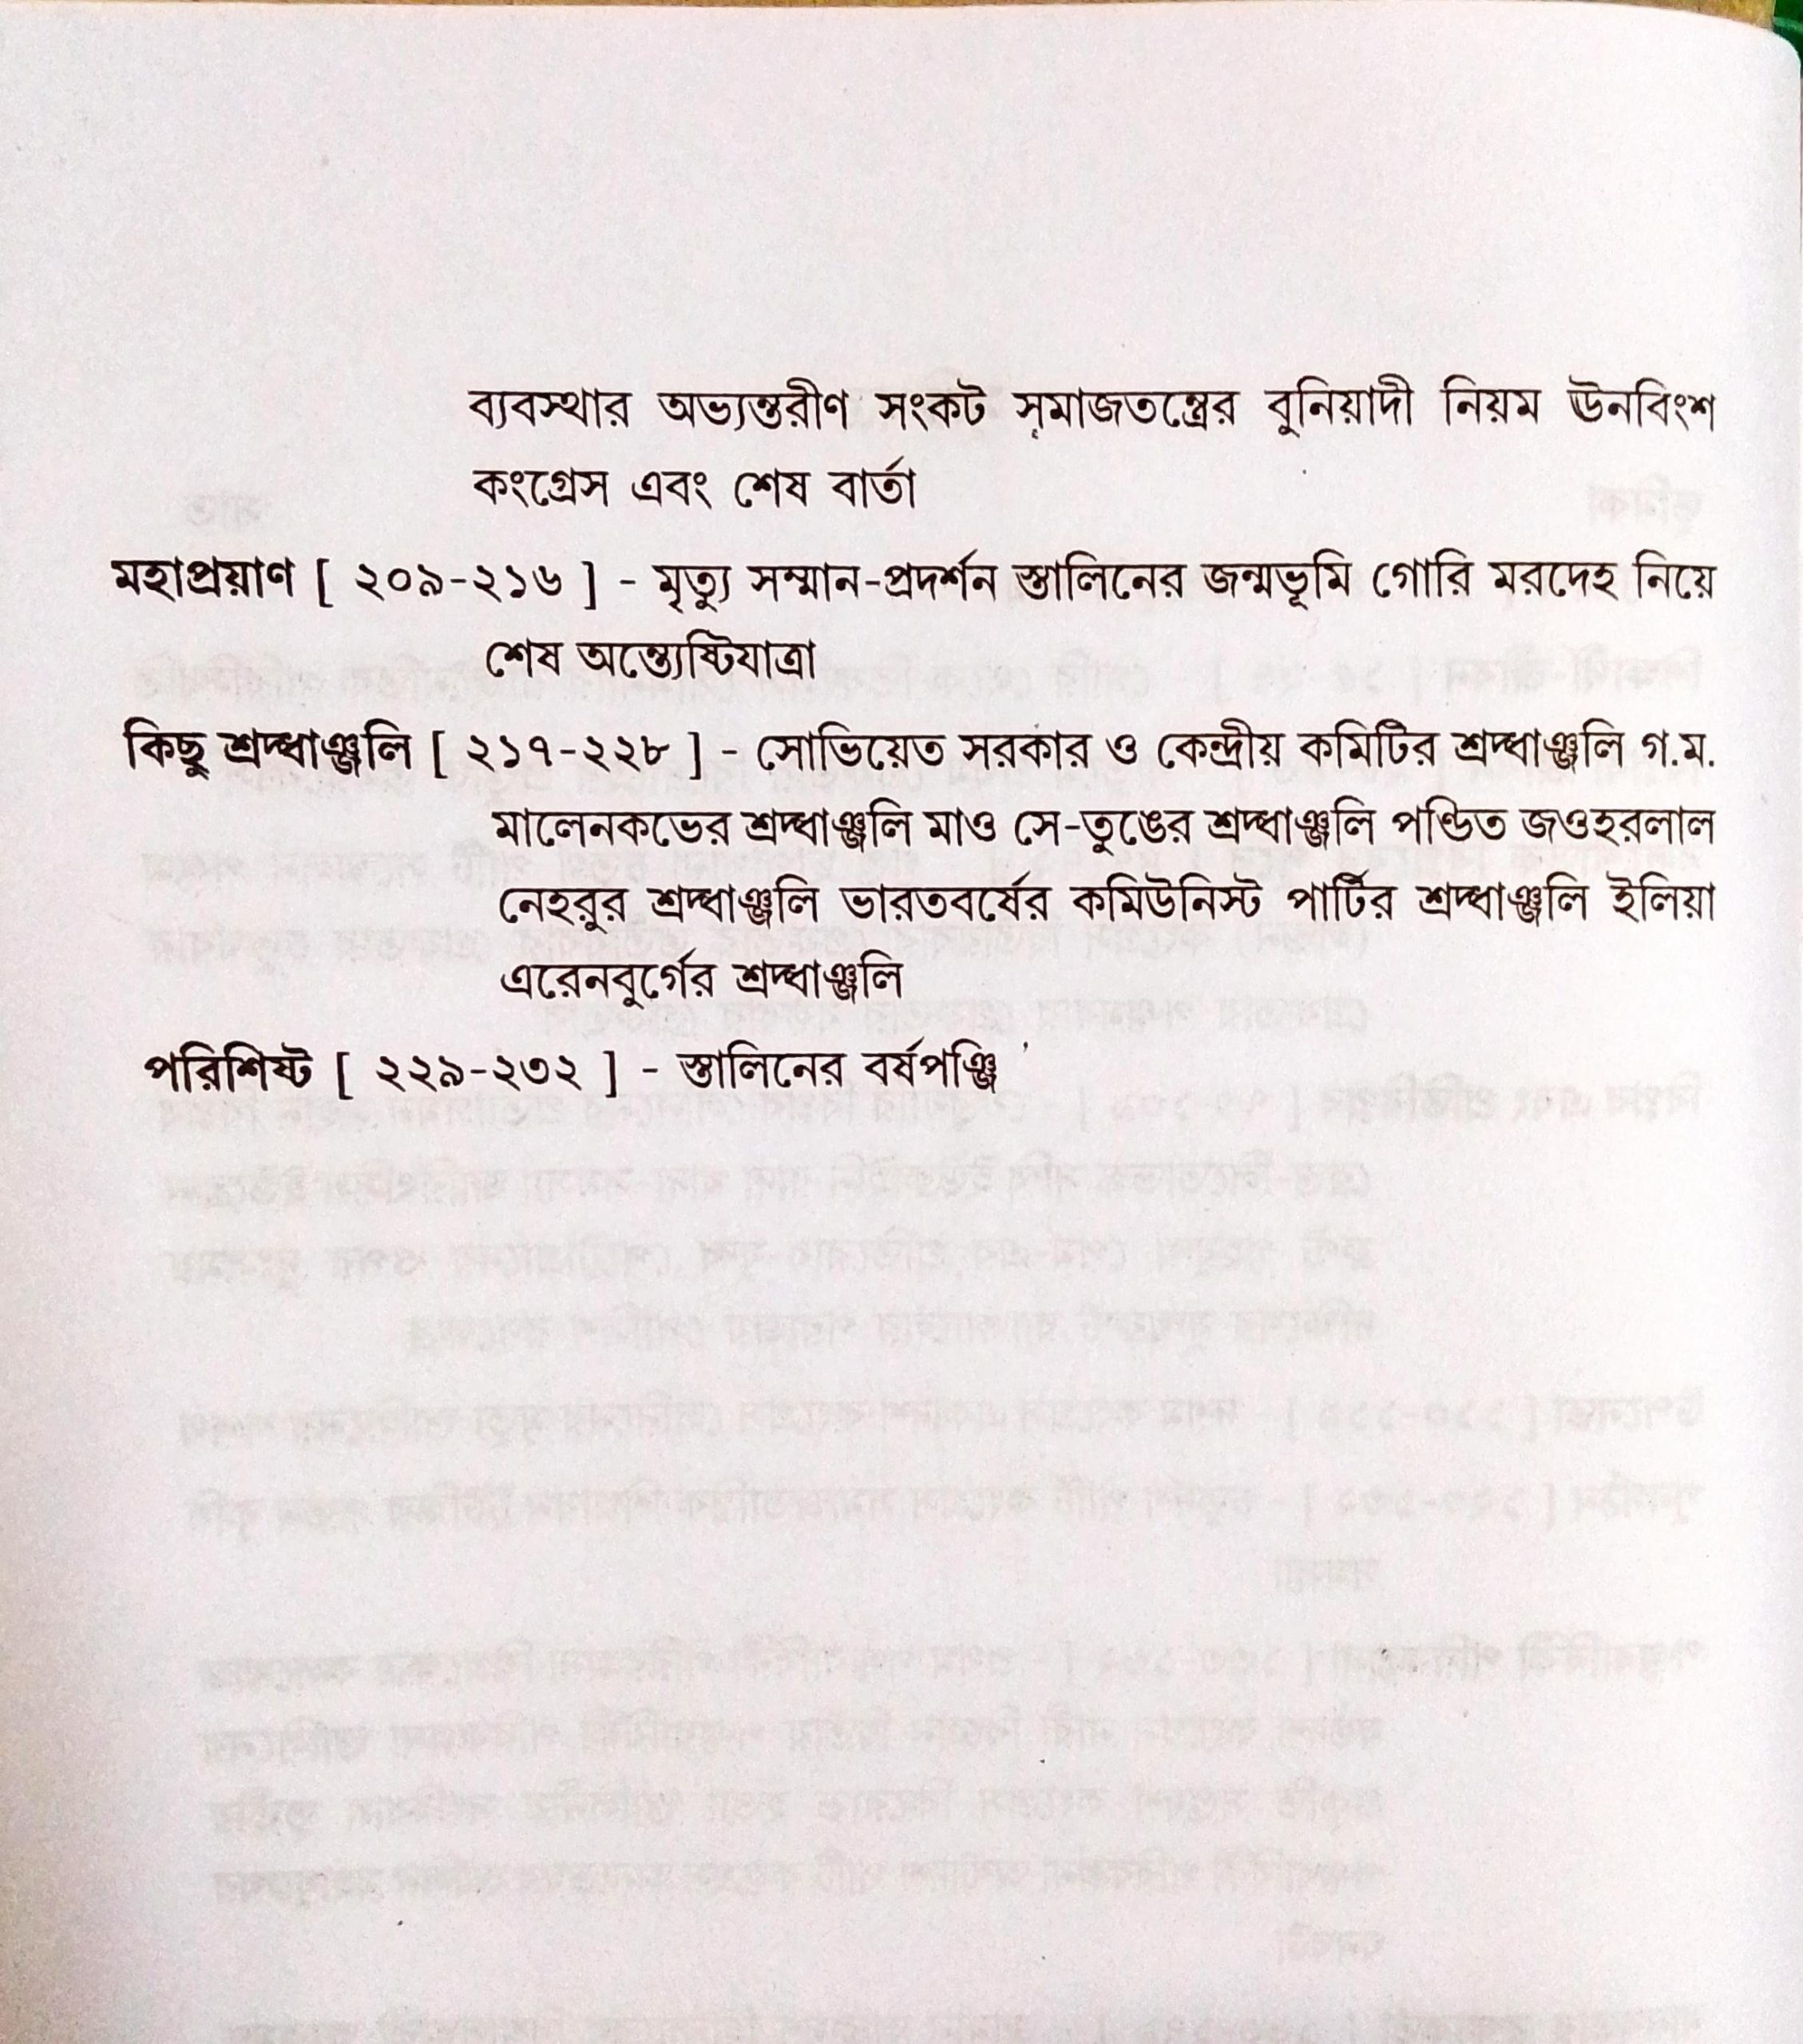 ব্যবস্থার অভ্যন্তরীণ সংকট সমাজতন্ত্রের বুনিয়াদী নিয়ম ঊনবিংশ
কংগ্রেস এবং শেষ বার্তা
মহাপ্রয়াণ [ ২০৯-২১৬ ] - মৃত্যু সম্মান-প্রদর্শন স্তালিনের জন্মভূমি গোরি মরদেহ নিয়ে
শেষ অন্ত্যেষ্টিযাত্রা
কিছু শ্রদ্ধাঞ্জলি [ ২১৭-২২৮ ] - সোভিয়েত সরকার ও কেন্দ্রীয় কমিটির শ্রদ্ধাঞ্জলি গ.ম.
মালেনকভের শ্রদ্ধাঞ্জলি মাও সে-তুঙের শ্রদ্ধাঞ্জলি পণ্ডিত জওহরলাল
নেহরুর শ্রদ্ধাঞ্জলি ভারতবর্ষের কমিউনিস্ট পার্টির শ্রদ্ধাঞ্জলি ইলিয়া
এরেনবুর্গের শ্রদ্ধাঞ্জলি
পরিশিষ্ট [ ২২৯-২৩২ ] - স্তালিনের বর্ষপঞ্জি